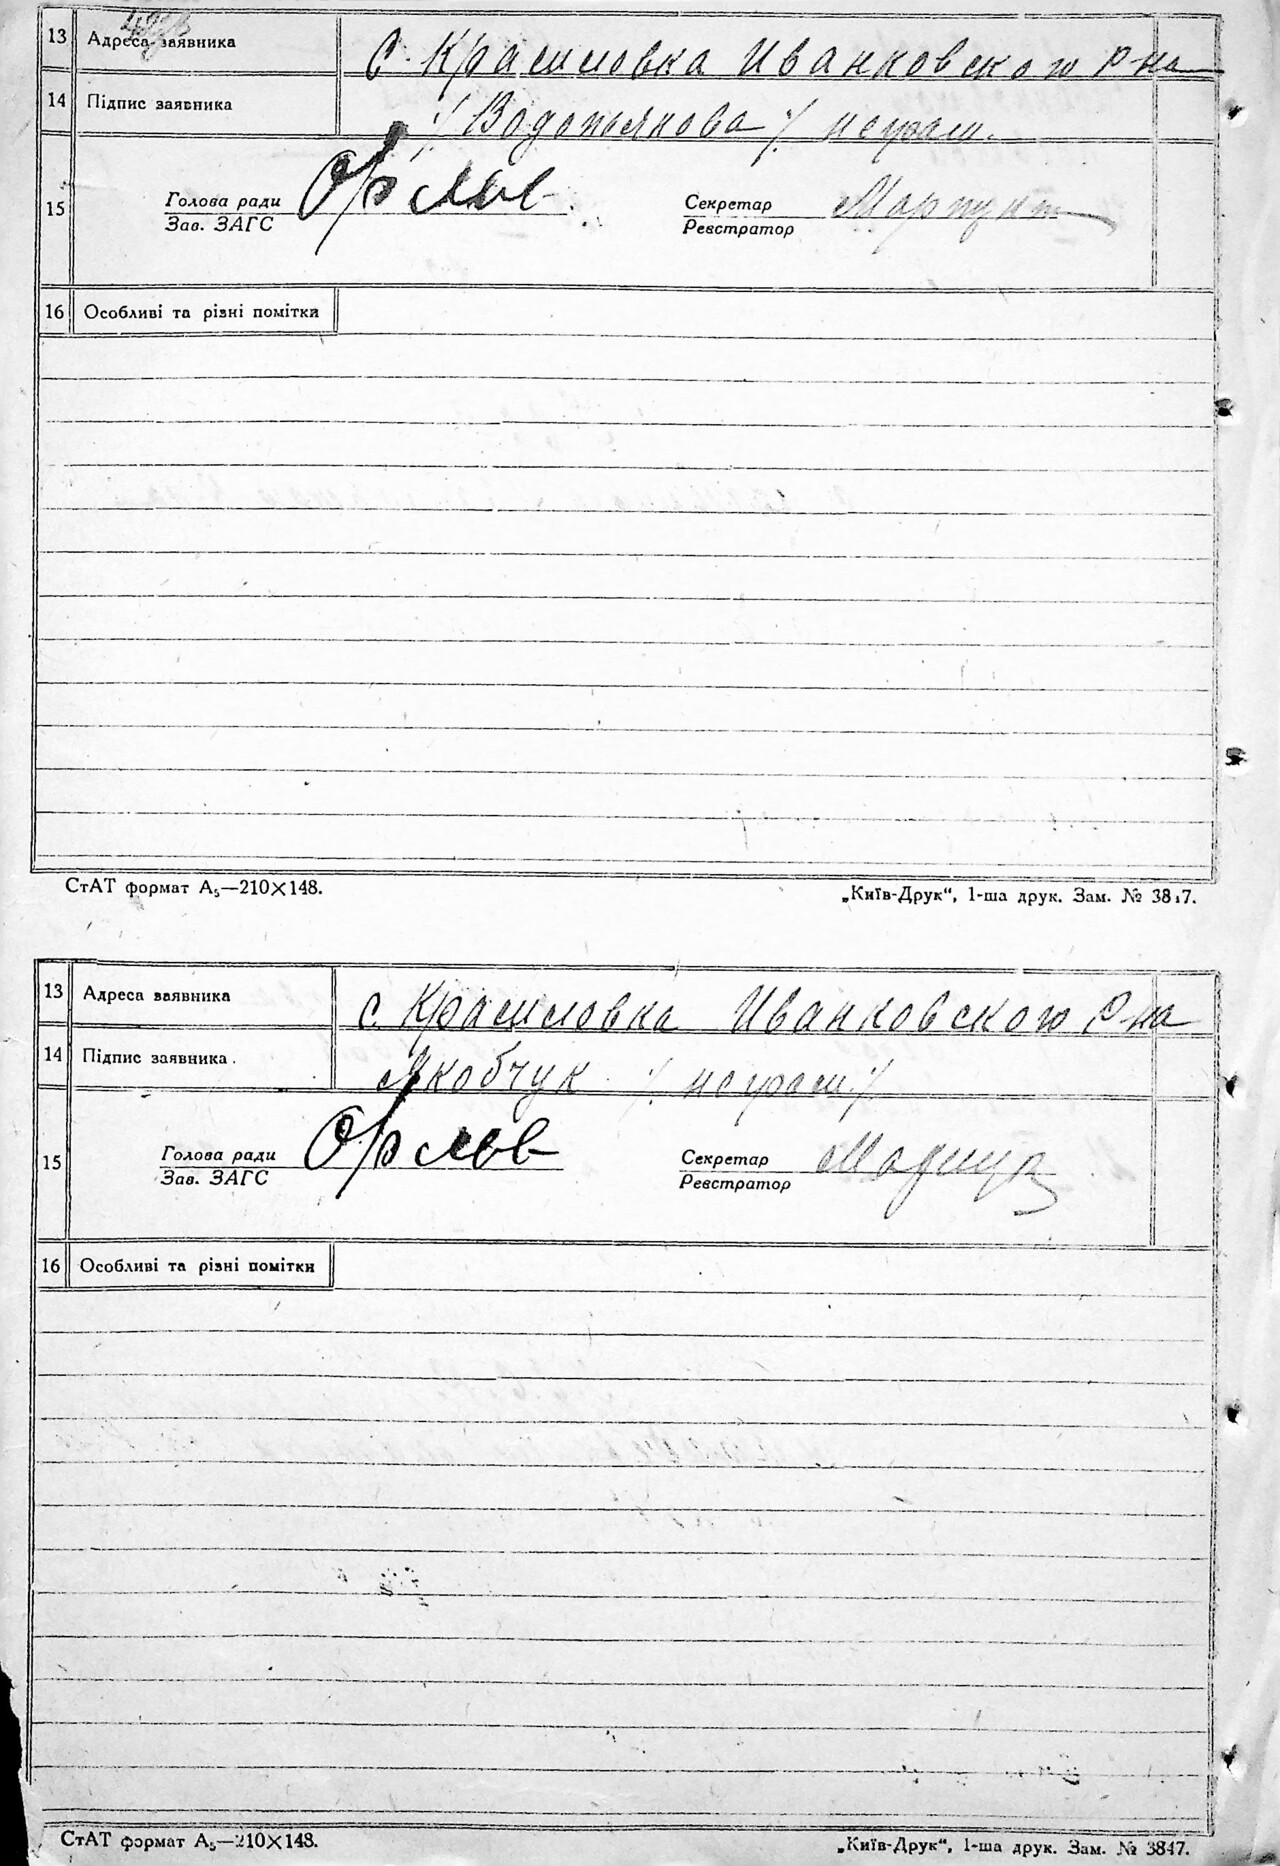 13 Адреса заявника с. Красиловка Иванковского р-на
14 Підпис заявника /Водопьянова/ неграм.
15 Голова ради Орлов Секретар
Зав. ЗАГС Реєстратор
16 Особливі та різні помітки
СтАТ формат А5—210×148. „Київ-Друк“, 1-ша друк. Зам. №
13 Адреса заявника с. Красиловка Иванковского р-на
14 Підпис заявника. Якобчук /неграм./
15 Голова ради Орлов Секретар
Зав. ЗАГС Реєстратор
16 Особливі та різні помітки
СтАТ формат А5—210×148. „Київ-Друк“, 1-ша друк. Зам. № 3847.